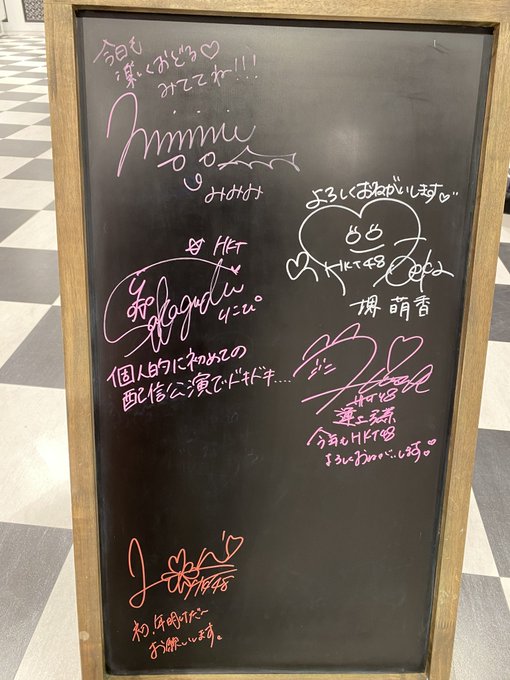 今日も
楽しくおどる♡
みててね!!!
みみみ
よろしくおねがいします♡
HKT48
堺 萌香
HKT
りこぴ
個人的に初めての
配信公演でドキドキ....
HKT48
今年もHKT48
よろしくおねがいします♡
HKT48
初、年明けだ〜
お願いします。